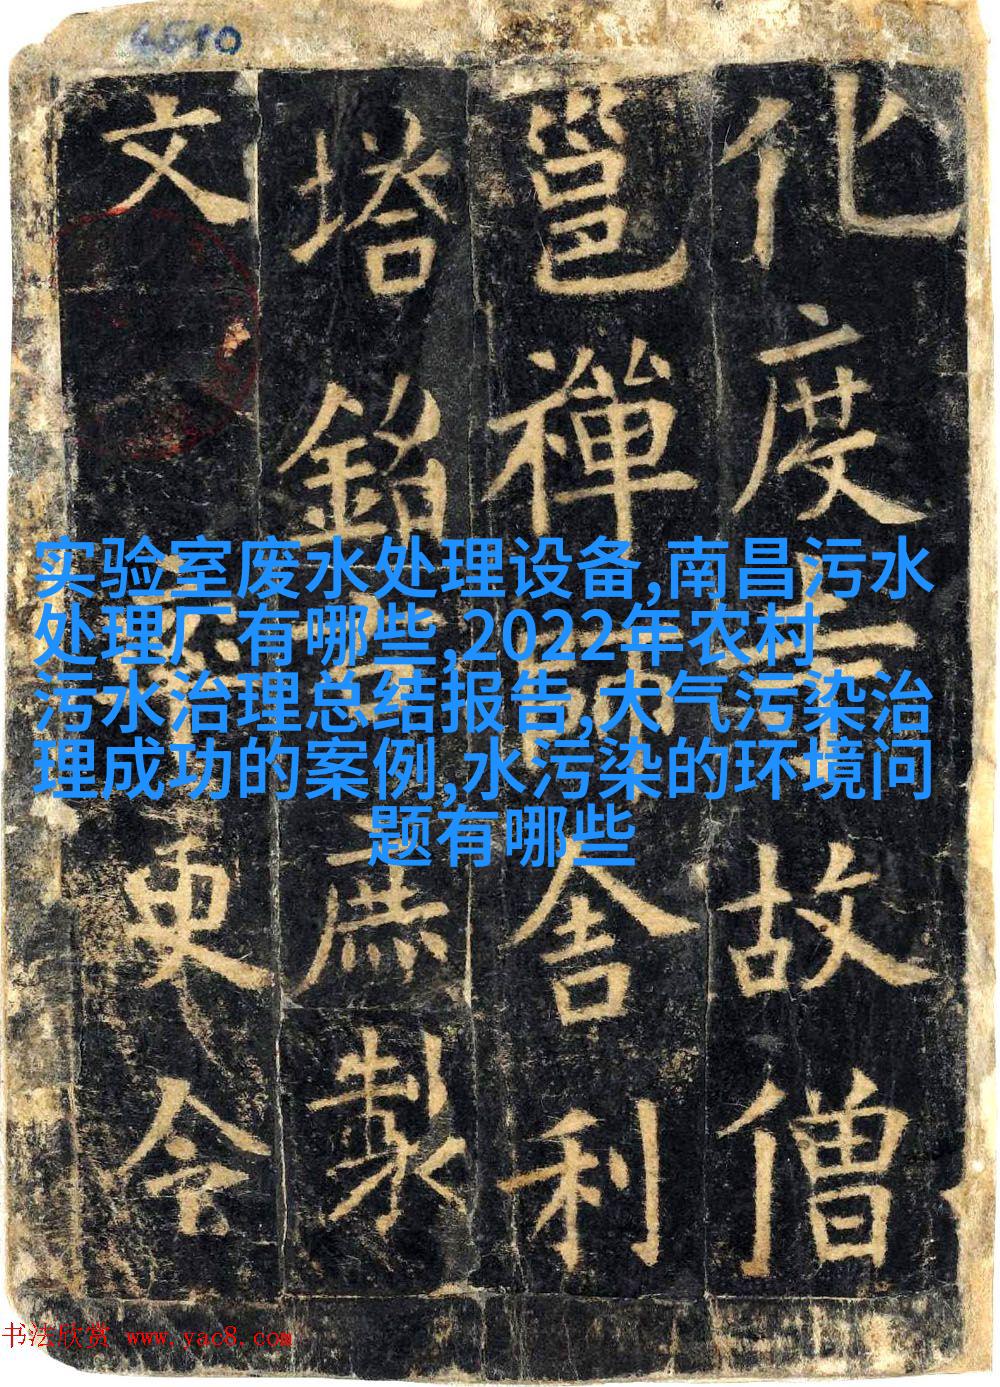 化度寺故僧
邕禪師舍利
塔銘右庶製
文率更令
实验室废水处理设备,南昌污水
处理厂有哪些,2022年农村
污水治理总结报告,大气污染治
理成功的案例,水污染的环境问
题有哪些
书法欣赏 www.yac8.com